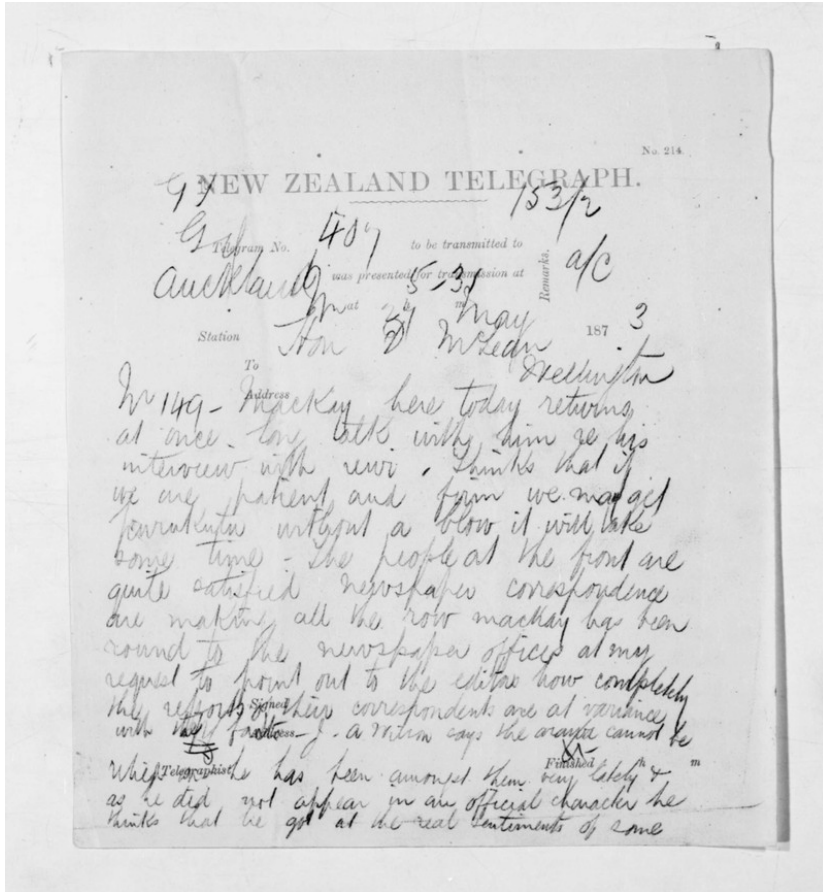 No. 214.
NEW ZEALAND TELEGRAPH.
153/2
Telegram No. 409 to be transmitted to
Auckland was presented for transmission at
Remarks. a/c
at 21 May 187 3
Station Hon D McLean
To Wellington
Address
No 149 - Mackay here today returns
at once. Long talk with him re his
interview with rewi. thinks that if
we are patient and firm we may get
without a blow it will take
some time - the people at the front are
quite satisfied newspaper correspondence
are making all the row mackay has been
round to the newspaper offices at my
request to point out to the editors how completely
the reports of their correspondents are at variance
with the facts - J. A Wilson says the cannot be
Signed
Address
relied on he has been amongst them very lately &
Telegraphist Finished h m
as he did not appear in an official character he
thinks that he got at the real sentiments of some